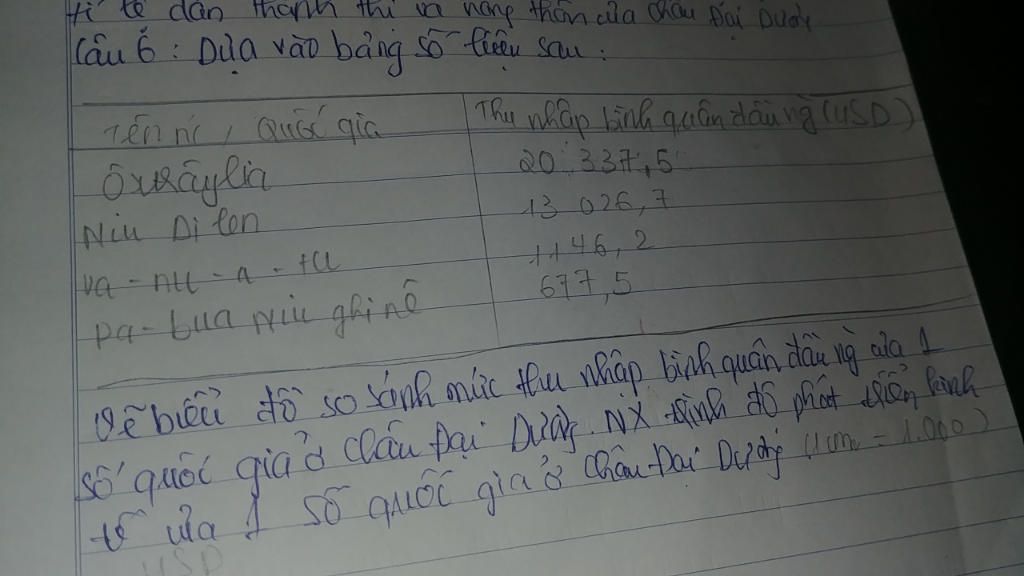 tỉ lệ dân thành thị và nông thôn của châu Đại Dương
Câu 6: Dựa vào bảng số liệu sau:
Tên nc, Quốc gia Thu nhập bình quân đầu ng (USD)
Ôxtrâylia 20 337,5
Niu Di len 13 026,7
Va-nu-a-tu 1146,2
Pa-bua Niu ghi nê 677,5
Vẽ biểu đồ so sánh mức thu nhập bình quân đầu ng của 1
số quốc gia ở Châu Đại Dương. NX trình độ phát triển kinh
tế của 1 số quốc gia ở Châu Đại Dương (1cm = 1.000)
USD